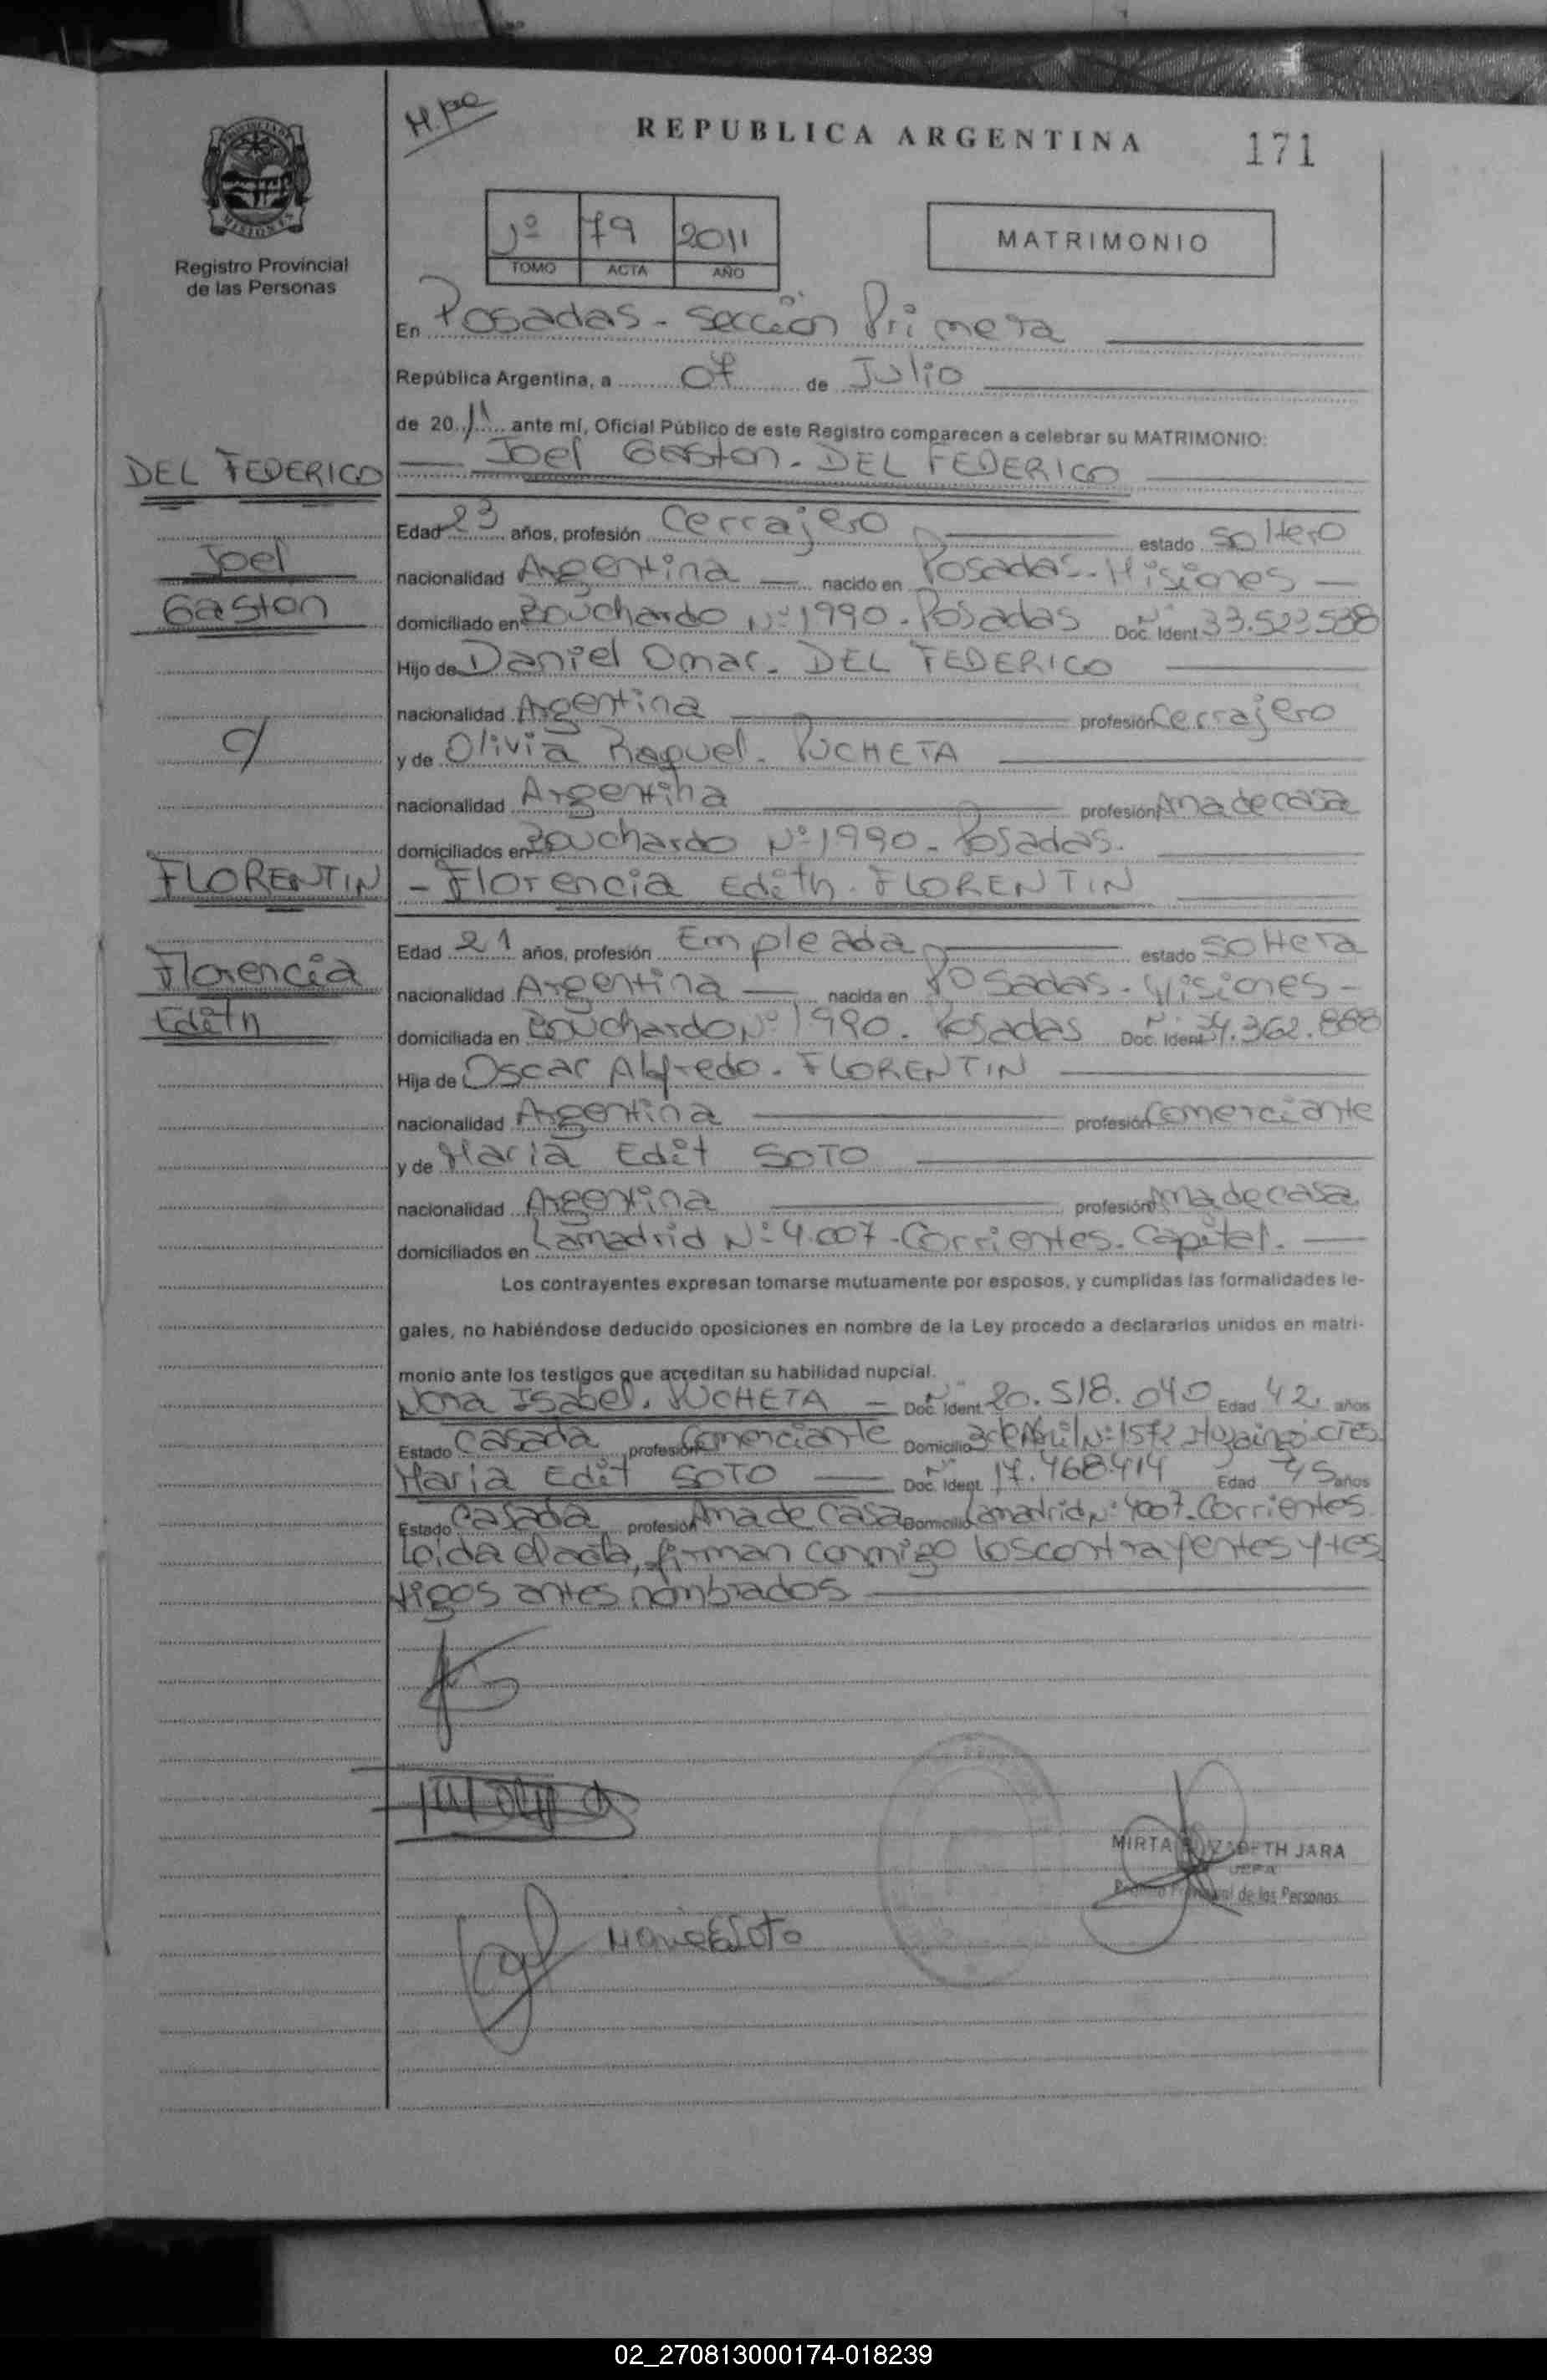 H.pe
REPUBLICA ARGENTINA
171
1º 79 2011
TOMO ACTA AÑO
MATRIMONIO
PROVINCIA DE MISIONES
Registro Provincial
de las Personas
En Posadas - Sección Primera
República Argentina, a 07 de Julio
de 2011 ante mí, Oficial Público de este Registro comparecen a celebrar su MATRIMONIO:
DEL FEDERICO
Joel Gaston. DEL FEDERICO
Edad 23 años, profesión Cerrajero estado Soltero
Joel
nacionalidad Argentina nacido en Posadas - Misiones
Gaston
domiciliado en Bouchardo Nº 1990 - Posadas Doc. Ident Nº 33.523.538
Hijo de Daniel Omar. DEL FEDERICO
nacionalidad Argentina profesión Cerrajero
c/
y de Olivia Raquel. PUCHETA
nacionalidad Argentina profesión Ama de casa
domiciliados en Bouchardo Nº 1990 - Posadas.
FLORENTIN
- Florencia Edith. FLORENTIN
Edad 21 años, profesión Empleada estado Soltera
Florencia
nacionalidad Argentina nacida en Posadas - Misiones -
Edith
domiciliada en Bouchardo Nº 1990. Posadas Doc. Ident Nº 34.362.888
Hija de Oscar Alfredo. FLORENTIN
nacionalidad Argentina profesión Comerciante
y de Maria Edit SOTO
nacionalidad Argentina profesión Ama de casa
domiciliados en Lamadrid Nº 4.007 - Corrientes. Capital.
Los contrayentes expresan tomarse mutuamente por esposos, y cumplidas las formalidades le-
gales, no habiéndose deducido oposiciones en nombre de la Ley procedo a declararlos unidos en matri-
monio ante los testigos que acreditan su habilidad nupcial.
Nora Isabel. PUCHETA - Doc. Ident. Nº 20.518.040 Edad 42 años
Estado Casada profesión Comerciante Domicilio 3 de Abril Nº 1572 Ituzaingó - CTES
Maria Edit SOTO Doc. Ident. Nº 17.468.414 Edad 45 años
Estado Casada profesión Ama de Casa Domicilio Lamadrid Nº 4007 - Corrientes
Leida el acta, firman conmigo los contrayentes y tes
tigos antes nombrados
MIRTA ELIZABETH JARA
JEFA
Registro Provincial de las Personas
Maria E Soto
02_270813000174-018239